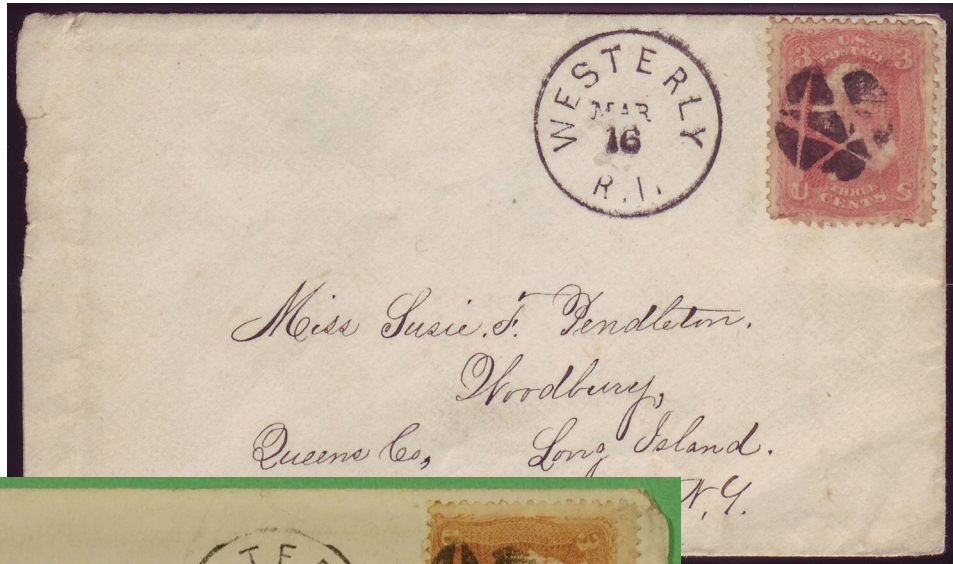 WESTERLY
MAR
16
R.I.
3 U.S. POSTAGE 3
U THREE CENTS S
Miss Susie. F. Pendleton.
Woodbury,
Queens Co, Long Island.
N.Y.
TE
3